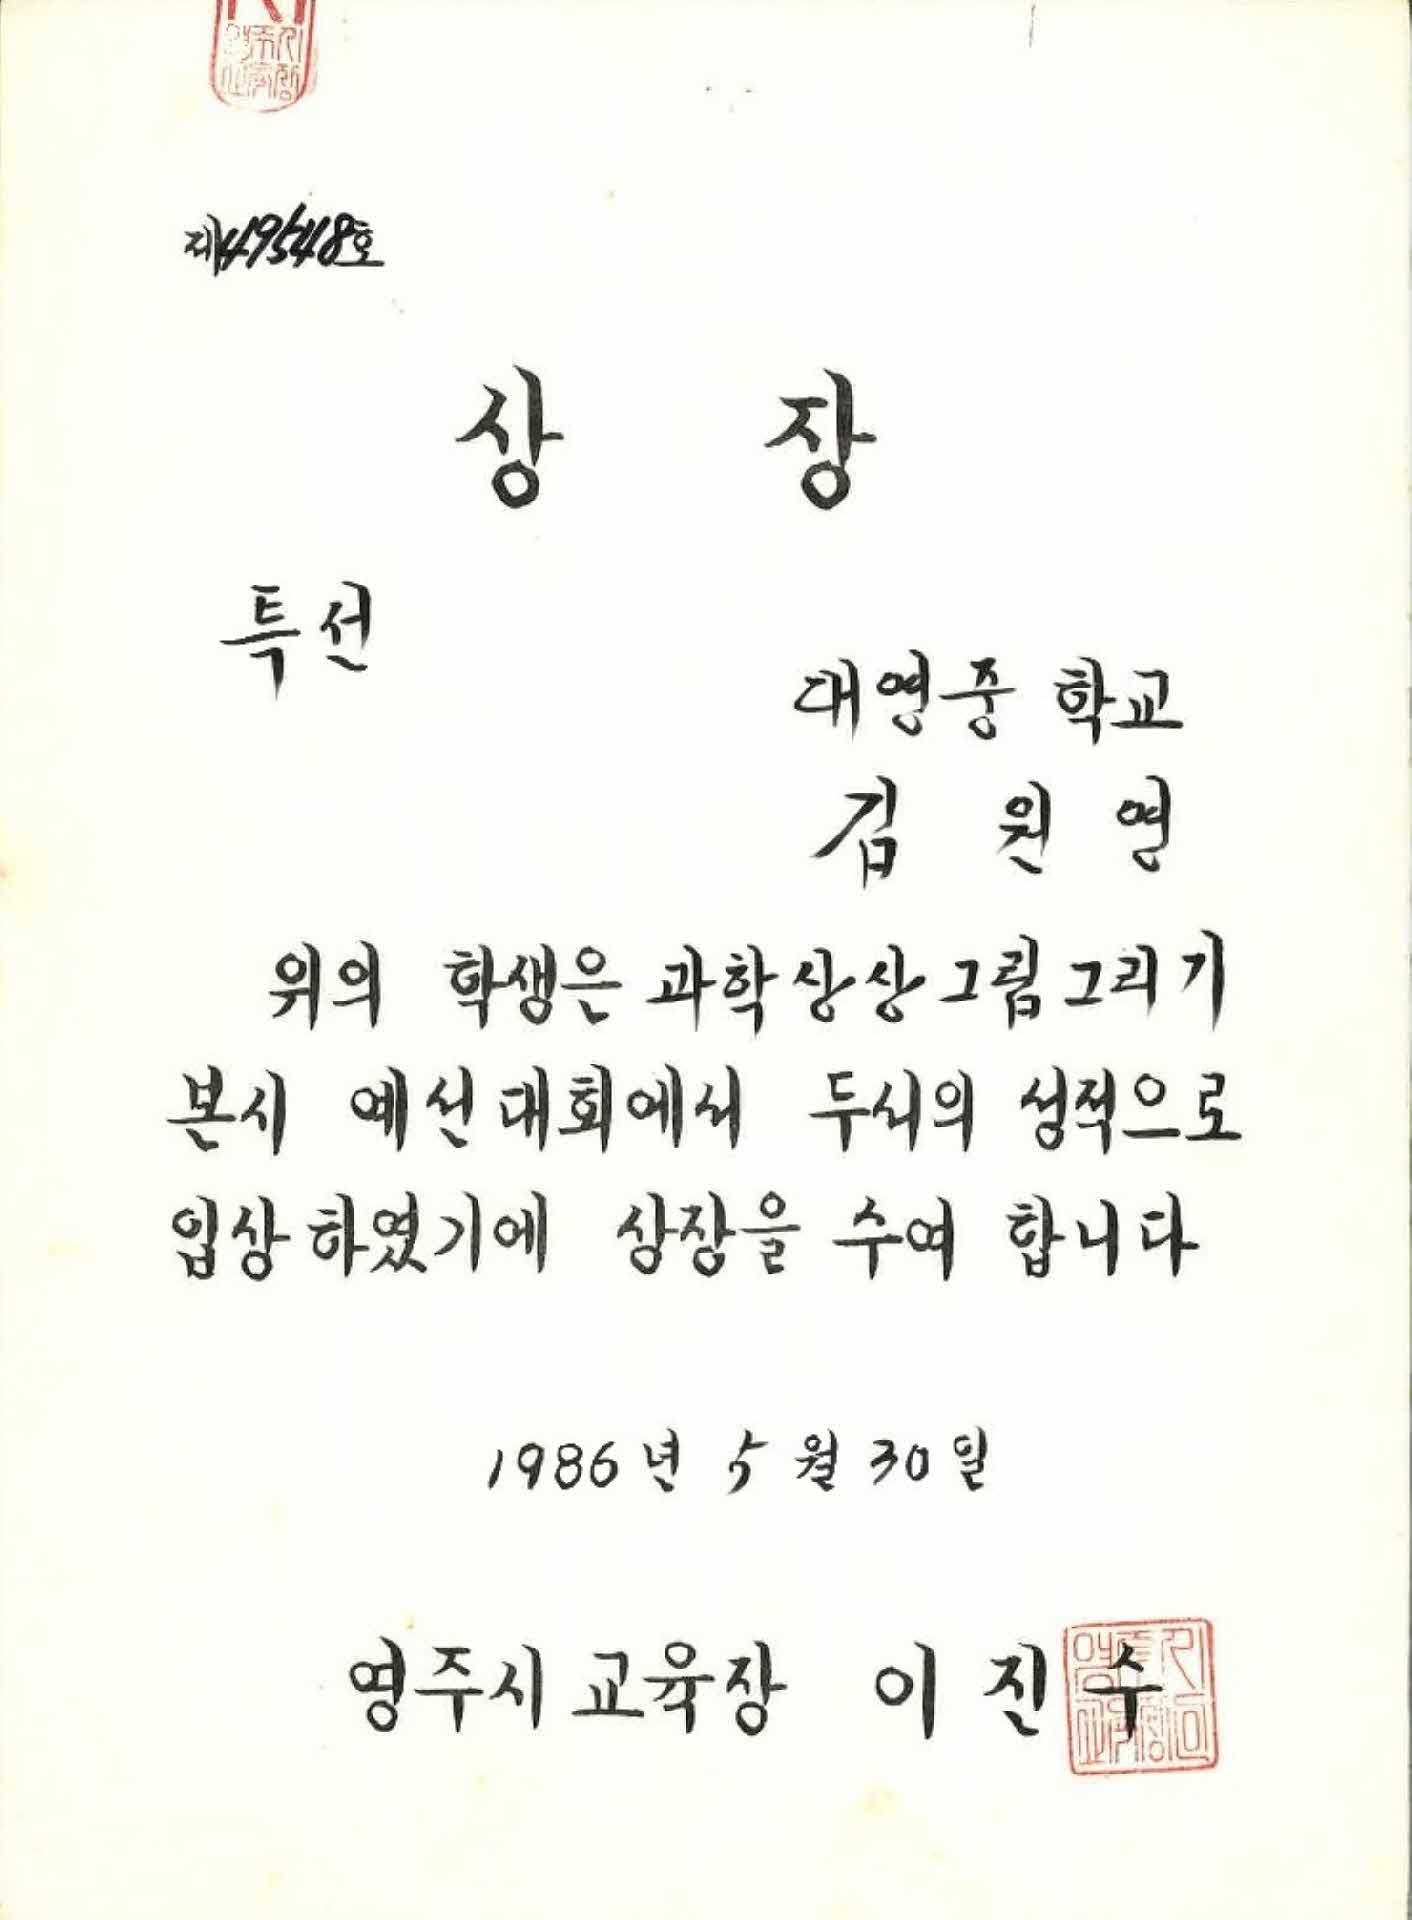 제49548호
상 장
특선
대영중 학교
김 원 열
위의 학생은 과학상상그림그리기
본시 예선대회에서 두서의 성적으로
입상하였기에 상장을 수여 합니다
1986년 5월 30일
영주시교육장 이 진 수